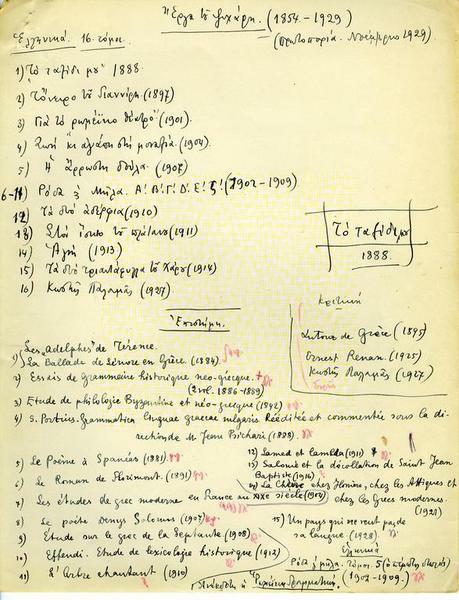 Ἔργα τοῦ Ψυχάρη. (1854-1929)
Ἑλληνικά. 16 τόμοι. (Πρωτοπορία. Νοέμβριο 1929)
1) Τὸ ταξίδι μου 1888.
2) Τὄνειρο τοῦ Γιαννίρη (1897)
3) Γιὰ τὸ ρωμέϊκο θέατρο (1901)
4) Ζωὴ κι ἀγάπη στὴ μοναξιά. (1904)
5) Ἡ Ἄρρωστη δούλα. (1907)
6-11 Ρόδα & Μῆλα. Α! Β! Γ! Δ! Ε! (1902-1909)
12) Τὰ δυὸ ἀδέρφια (1910)
13) Στὸν ἴσκιο τοῦ πλάτανου (1911)
14) Ἁγνή (1913)
15) Τὰ δυὸ τριαντάφυλλα τοῦ Χάρου (1914)
16) Κωστῆς Παλαμᾶς (1927)
Τὸ ταξίδι μου
1888.
Κριτική
Autour de Grèce (1895)
Ernest Renan. (1925)
Κωστῆς Παλαμᾶς (1927)
Ἐπιστήμη.
1) Les "Adelphes" de Térence.
La Ballade de Lénore en Grèce (1884)
2) Essais de Grammaire historique néo-grecque.
(2 vol. 1886-1889)
3) Etude de philologie Byzantine et néo-grecque (1892)
4) S. Portius. Grammatica linguae graecae vulgaris Rééditée et commentée sous la di-
rection de M. Jean Psichari (1888)
5) Le Poème à Spanéas (1881)
6) Le Roman de Florimont. (1891)
7) Les études de grec moderne en France au XIXe siècle (1904)
8) Le poète Denys Solomos (1907)
9) Etude sur le grec de la Septante (1908)
10) Effendi. Etude de lexicologie historique (1912)
11) L'Arbre chantant (1910)
12) Lamed et lambda (1911)
13) Salomé et la décollation de Saint Jean
Baptiste (1916)
14) La Chèvre chez Homère, chez les Attiques et
chez les Grecs modernes.
(1928)
15) Un pays qui ne veut pas de
sa langue. (1928)
Ἑλληνικά
Ρόδα & μῆλα. τόμοι. 5
(1902-1909)